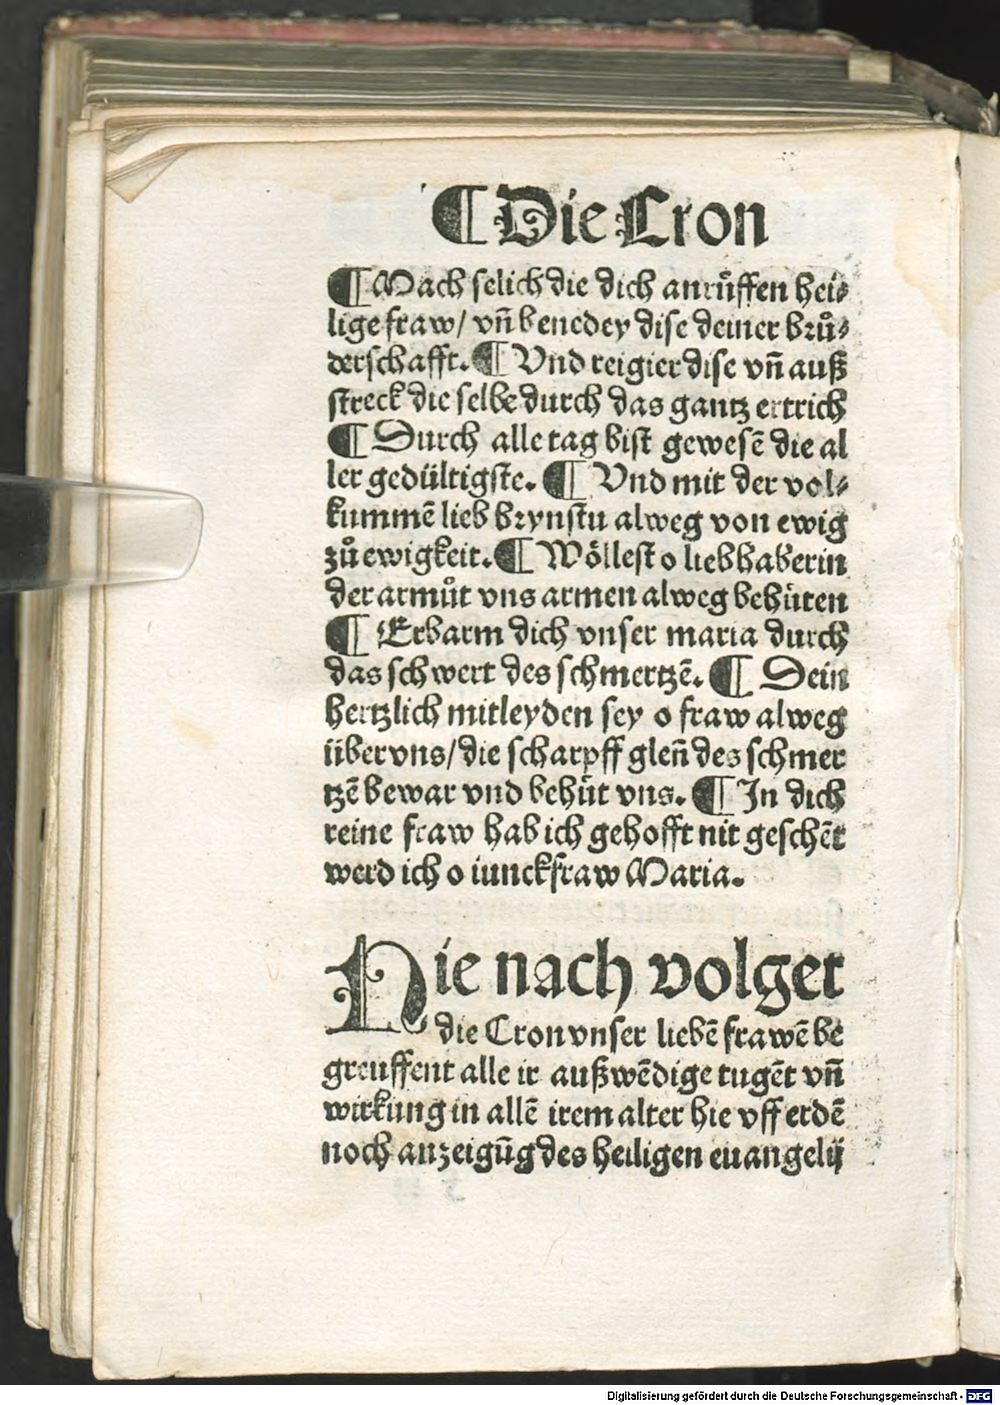 ¶ Die Cron
¶ Mach selich die dich anrůffen hei⸗
lige fraw/ vn̄ benedey dise deiner brů⸗
derschafft. ¶ Vnd reigier dise vn̄ auß
streck die selbe durch das gantz ertrich
¶ Durch alle tag bist gewesē die al
ler gedültigste. ¶ Vnd mit der vol⸗
kummē lieb brynstu alweg von ewig
zů ewigkeit. ¶ Wöllest o liebhaberin
der armůt vns armen alweg behüten
¶ Erbarm dich vnser maria durch
das schwert des schmertzē. ¶ Dein
hertzlich mitleyden sey o fraw alweg
über vns/ die scharpff gleñ des schmer
tzē bewar vnd behüt vns. ¶ In dich
reine fraw hab ich gehofft nit geschēt
werd ich o iunckfraw Maria.
Hie nach volget
die Cron vnser liebē frawē be
greuffent alle ir außwēdige tugēt vn̄
wirkung in allē irem alter hie vff erdē
noch anzeigūg des heiligen euangelij
Digitalisierung gefördert durch die Deutsche Forschungsgemeinschaft - DFG